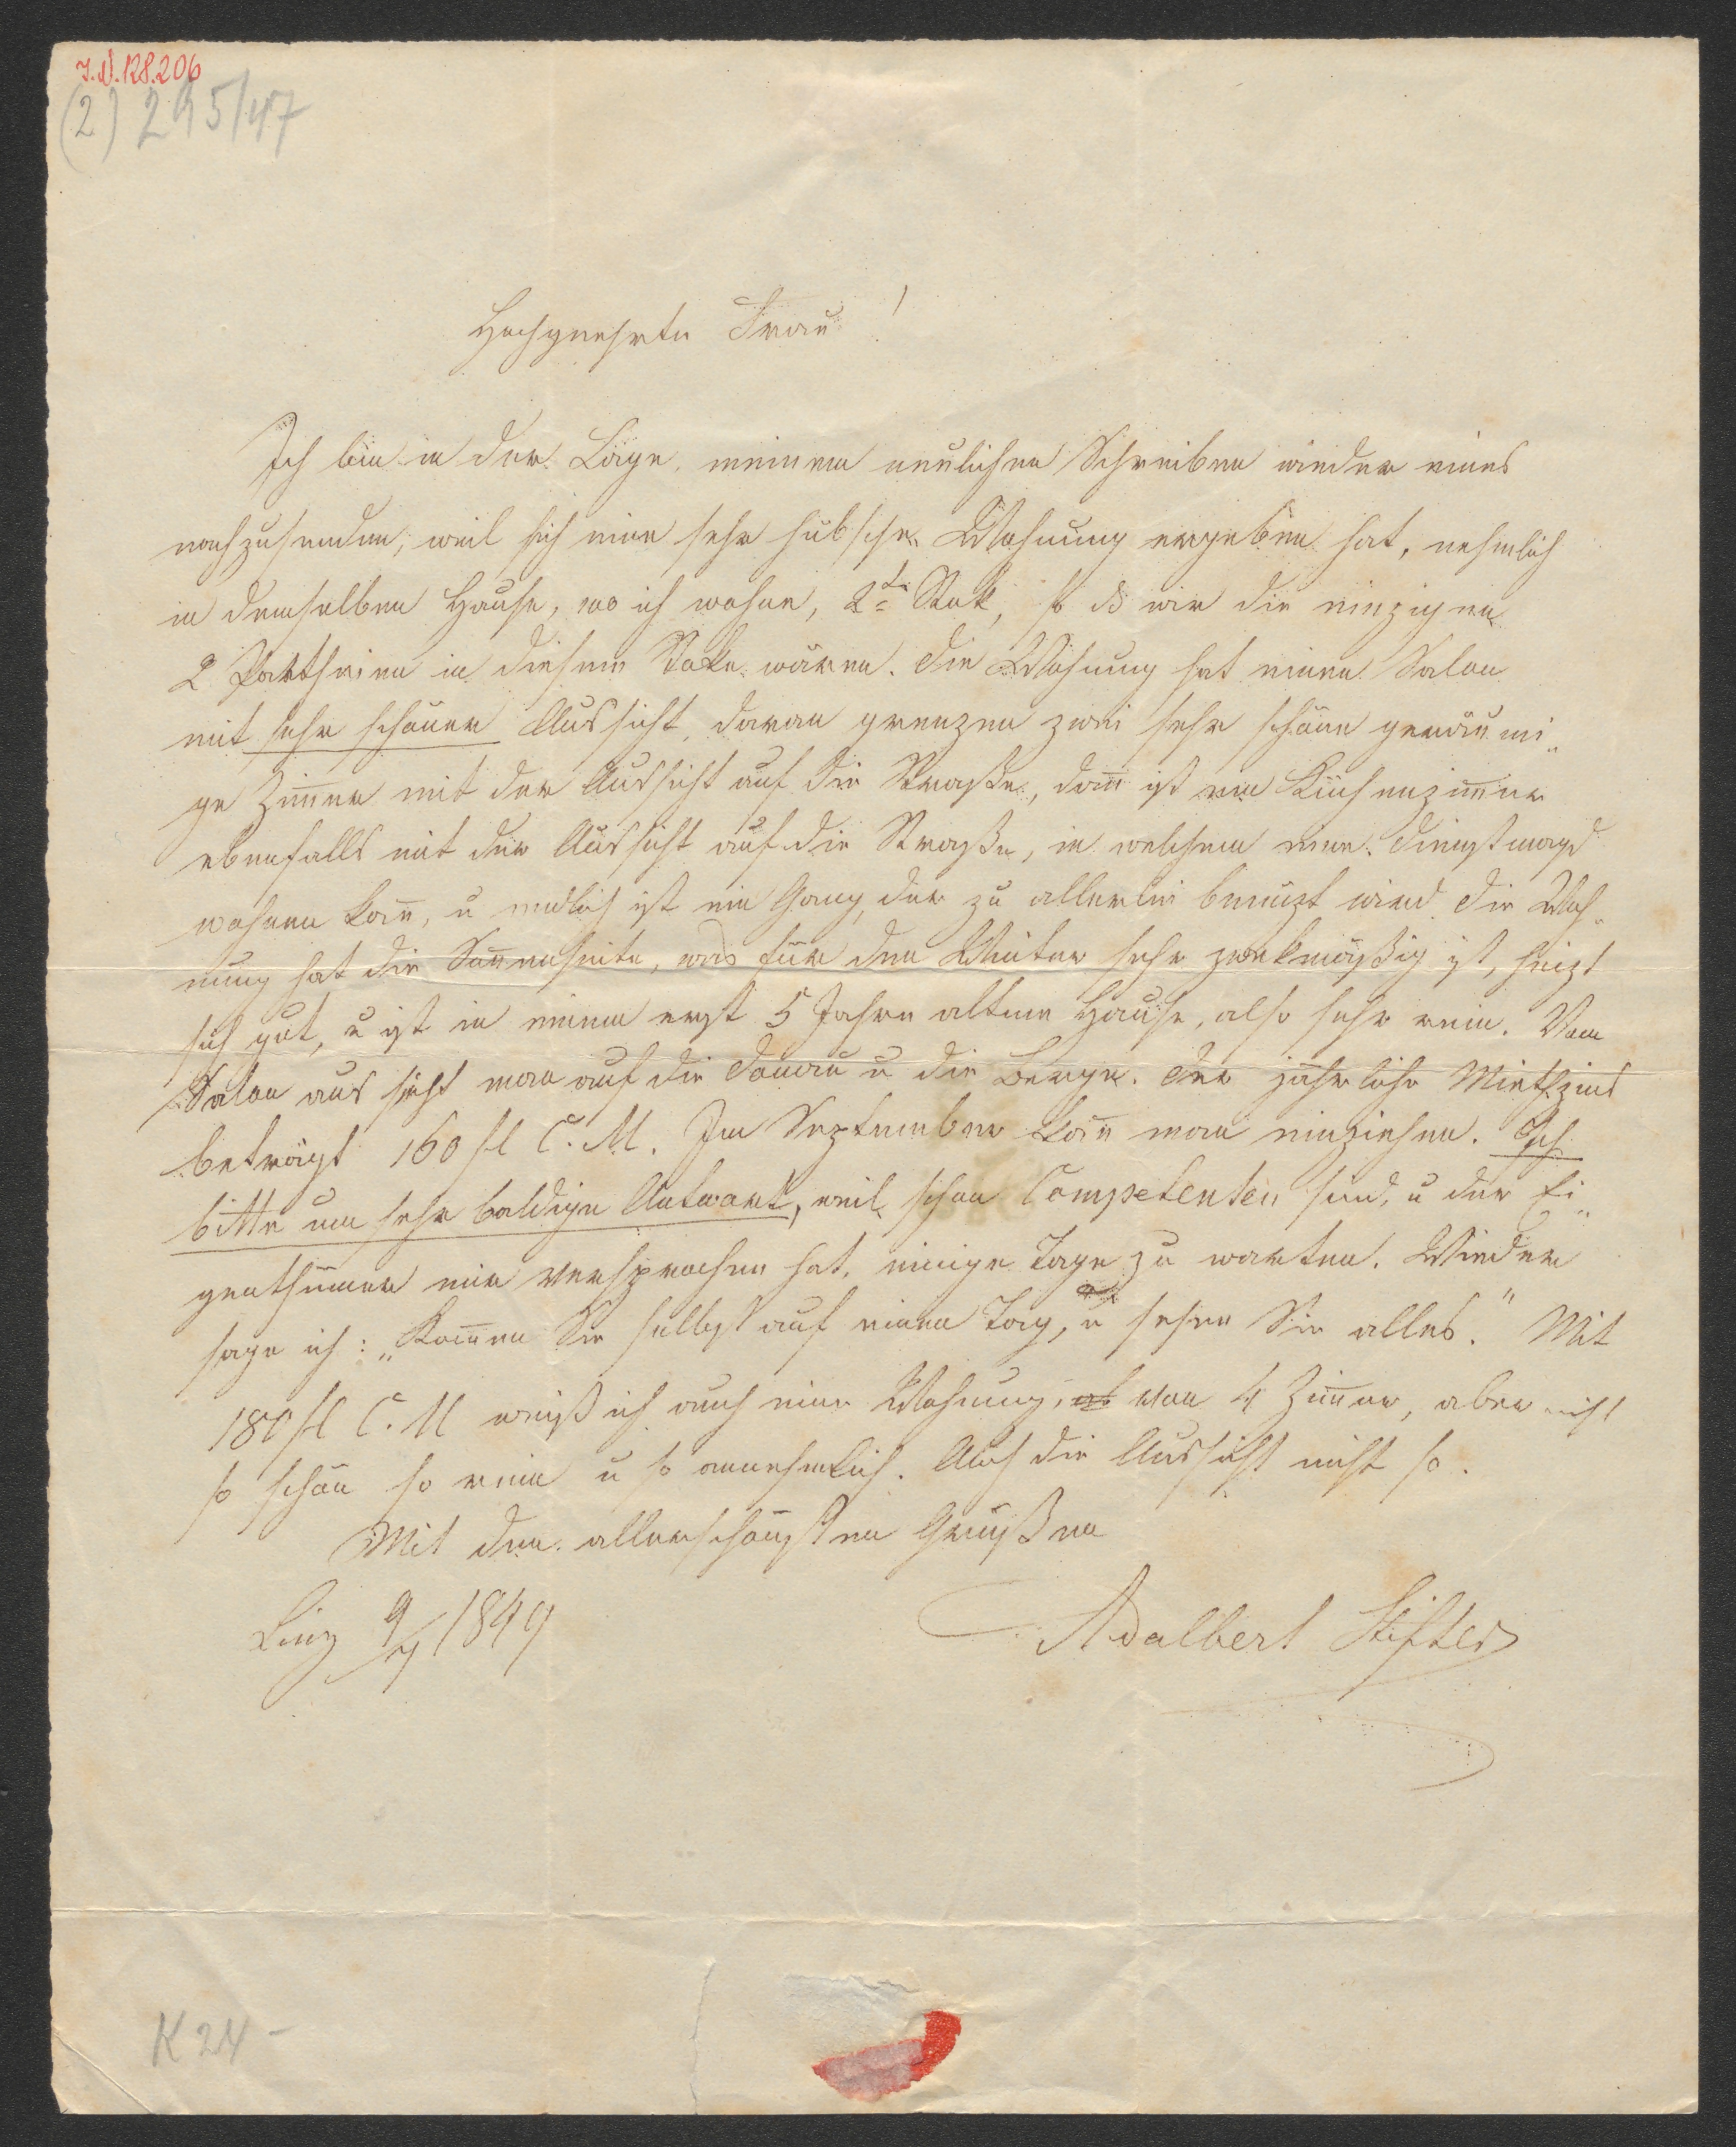 J.N. 128.206
(2) 295/47
Hochgeehrte Frau!
Ich bin in der Lage, meinem neulichen Schreiben wieder eines
nachzusenden, weil sich eine sehr hübsche Wohnung ergeben hat, nehmlich
in demselben Hause, wo ich wohne, 2te Stok, so dß wir die einzigen
2 Partheien in diesem Stoke wären. Die Wohnung hat einen Salon
mit sehr schöner Aussicht, daran grenzen zwei sehr schöne geräumi„
ge Zim̄er mit der Aussicht auf die Straße, dan̄ ist ein Küchenzim̄er
ebenfalls mit der Aussicht auf die Straße, in welchem eine Dienstmagd
wohnen kan̄, u endlich ist ein Gang, der zu allerlei benüzt wird. Die Woh„
nung hat die Son̄enseite, was für den Winter sehr zwekmäßig ist, heizt
sich gut, u ist in einem erst 5 Jahre alten Hause, also sehr rein. Vom
Salon aus sieht man auf die Donau u die Berge. Der jährliche Miethzins
beträgt 160 fl C. M. Im September kan̄ man einziehen. Ich
bitte um sehr baldige Antwort, weil schon Competenten sind, u der Ei„
genthümer mir versprochen hat, einige Tage zu warten. Wieder
sage ich: „Kom̄en Sie selbst auf einen Tag, u sehen Sie alles." Mit
180 fl C. M weiß ich auch eine Wohnung, von 4 Zim̄er, aber nicht
so schön so rein u so annehmlich. Auch die Aussicht nicht so.
Mit den allerschönsten Grüßen
Linz 9/7 1849
Adalbert Stifter
K 24 -